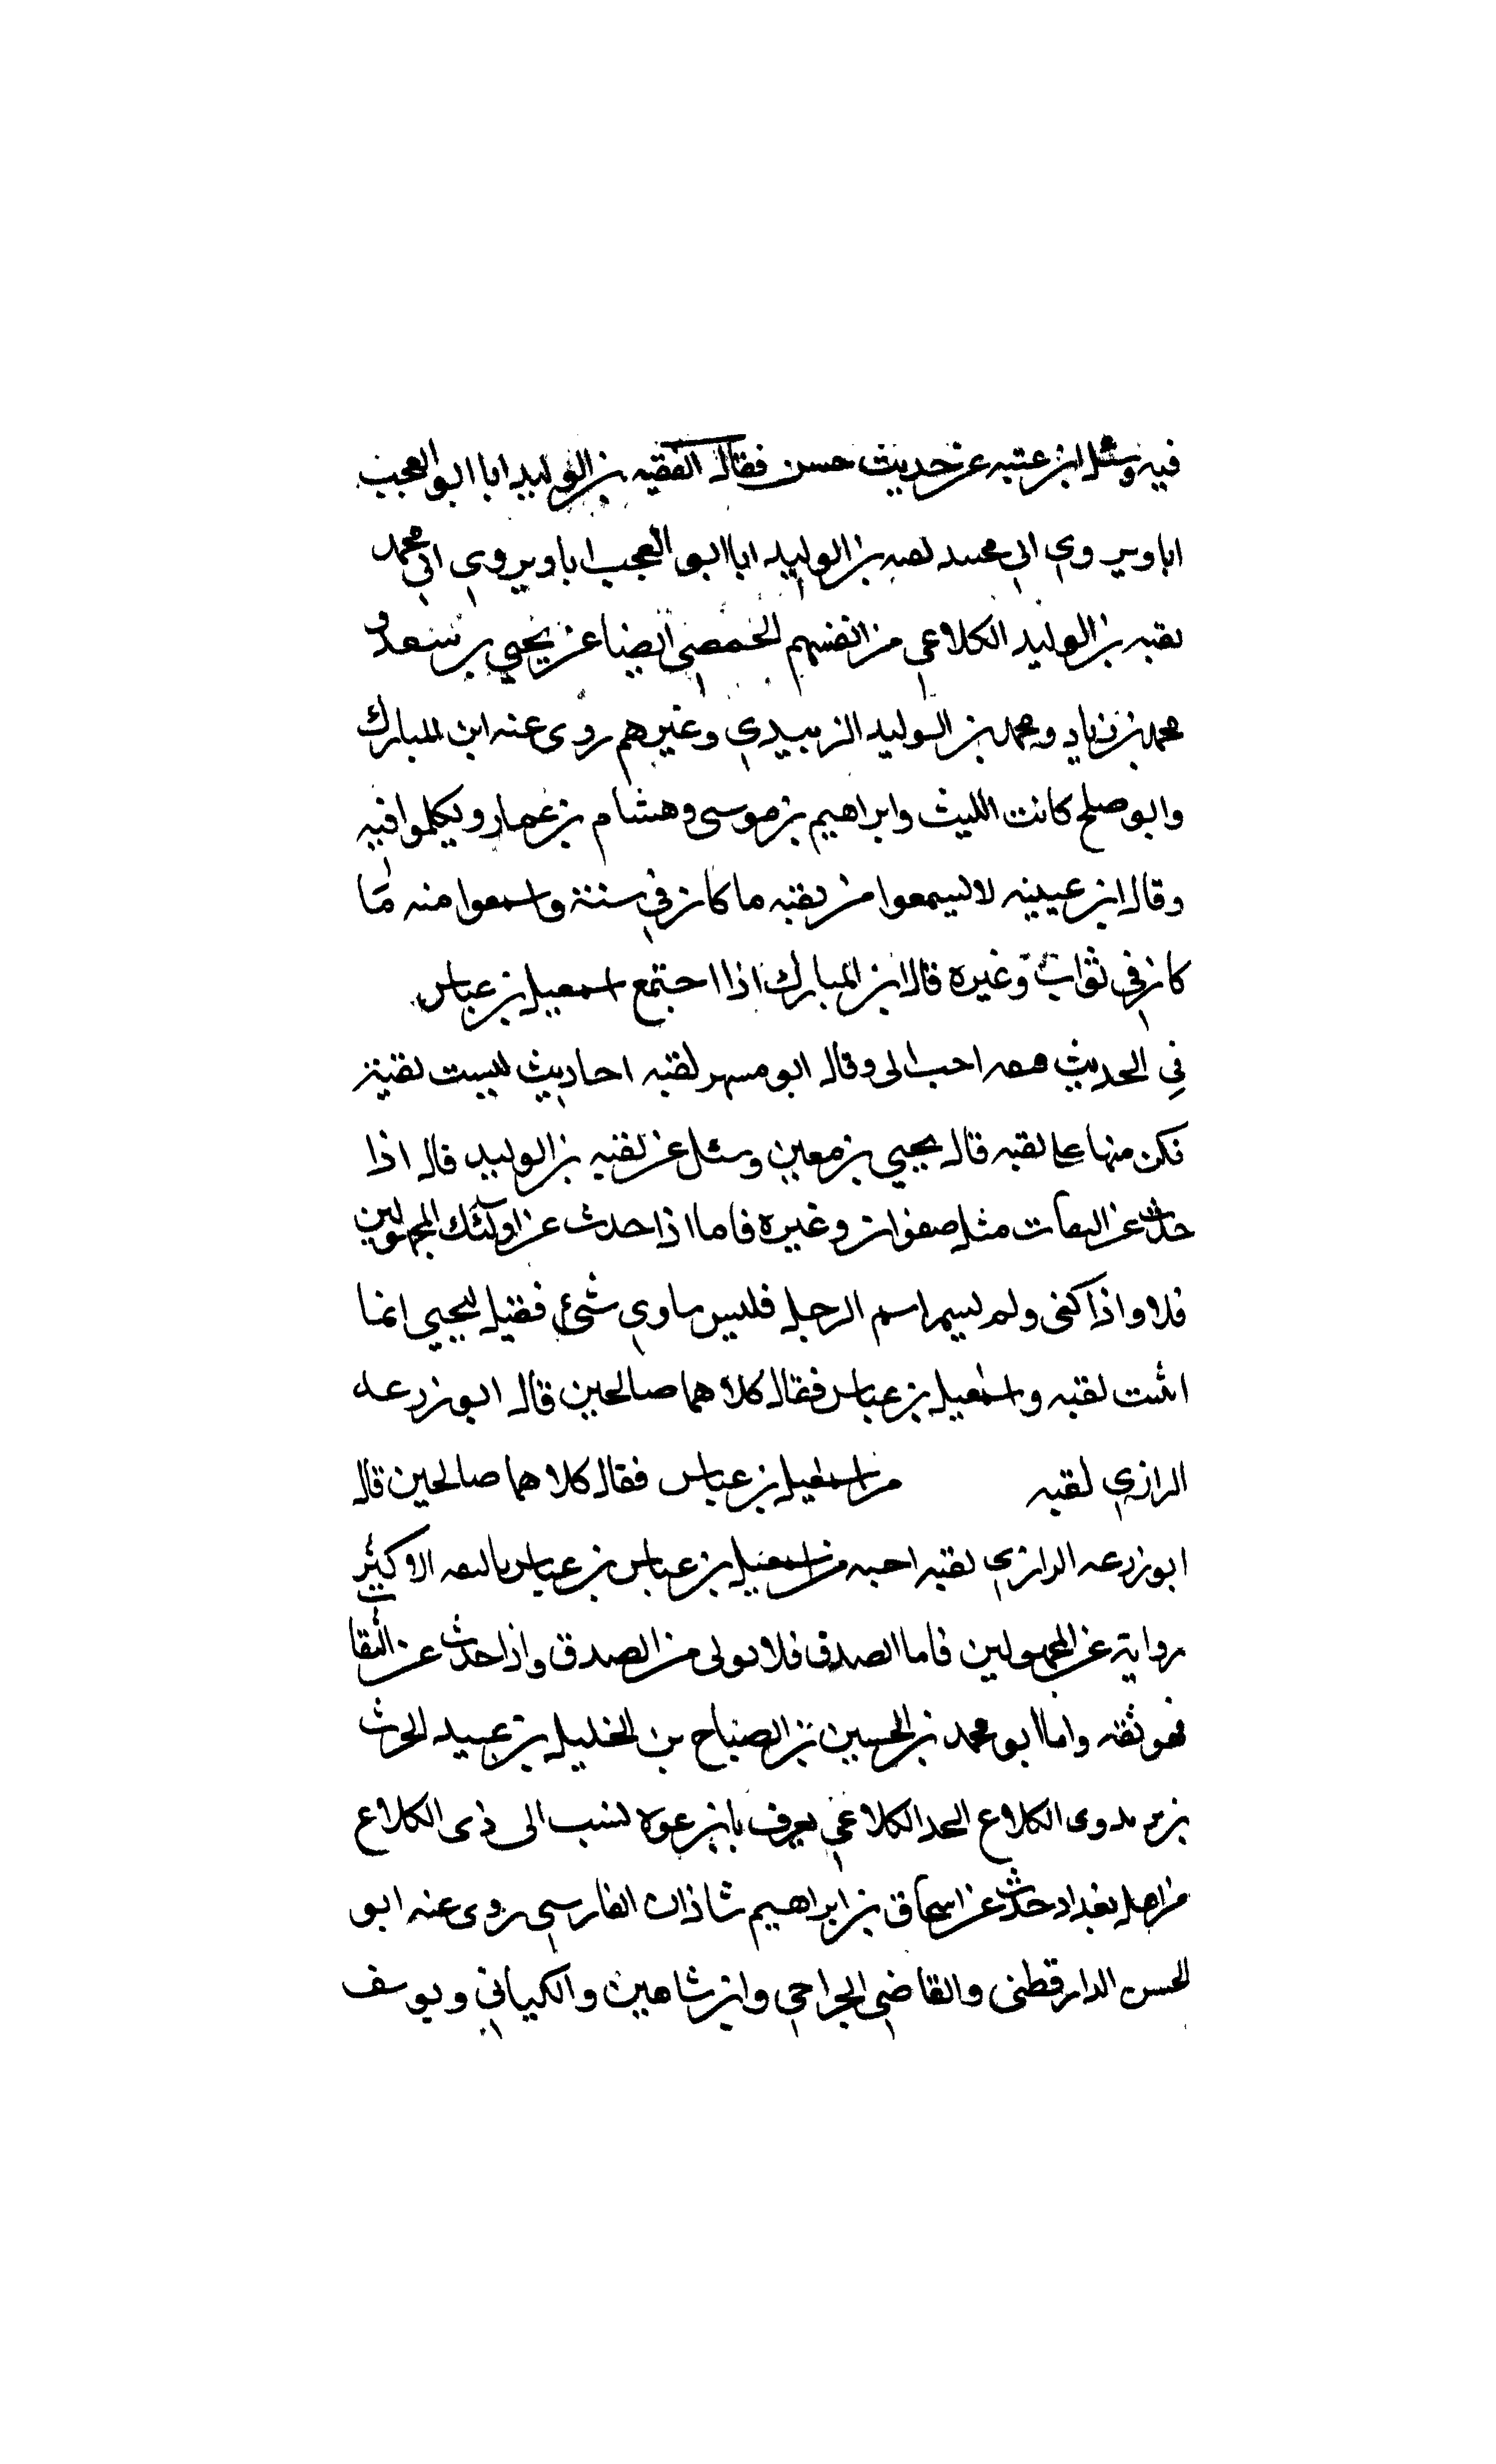 فيه وسئل ابن عتبه عن حديث حسن فقال الفقيه بن الوليد ابا ابو العجب
اباوير وي ابي محمد لقبه بن الوليد ابا ابو العجب اباوير وي ابي محمد
لقبه بن الوليد الكلاعي من انفسهم الحمصي ايضا عن يحيي بن سعد و
محمد بن زياد ومحمد بن الوليد الزبيدي وغيرهم روى عنه ابن المبارك
وابو صلح كانت الليث وابراهيم بن موسى وهشام بن عمار ويكلموا فيه
وقال ابن عيينه لا ليسمعوا من لقبه ما كان في سنة واسمعوا منه ما
كان في ثواب وغيره قال ابن المبارك اذا احتمع اسمعيل بن عباس
في الحديث احب الى وقال ابو مسهر لقبه احاديث ليست نقيه
فكن منها علي لقبه قال يحيي بن معين وسئل عن لقبه بن الوليد قال اذا
حدث عن الثقات مثل صفوان وغيره فاما اذا حدث عن اولئك المجهولين
فلا واذا كنى ولم ليسم اسم الرجل فليس ساوي شئ فقيل ليحيي انما
اثبت لقبه واسمعيل بن عباس فقال كلاهما صالحين قال ابو زرعه
الرازي لقبه من اسمعيل بن عباس فقال كلاهما صالحين قال
ابو زرعه الرازي لقبه احبه من اسمعيل بن عباس بن عباس الا كثير
رواية عن المجهولين فاما الصدق فلا يولى من الصدق واذا حدث عن الثقات
فهو ثقه واما ابو محمد بن الحسين بن الصباح بن الخليل بن عبيد الحرث
بن الكلاع الكلاعي يعرف بابن عوه لنسب الى ذى الكلاع
من اهل بغداد حدث عن اسحاق بن ابراهيم شاذان الفارسي روى عنه ابو
الحسن الدارقطنى والقاضي الجراحي وابن شاهين والكياني ويوسف